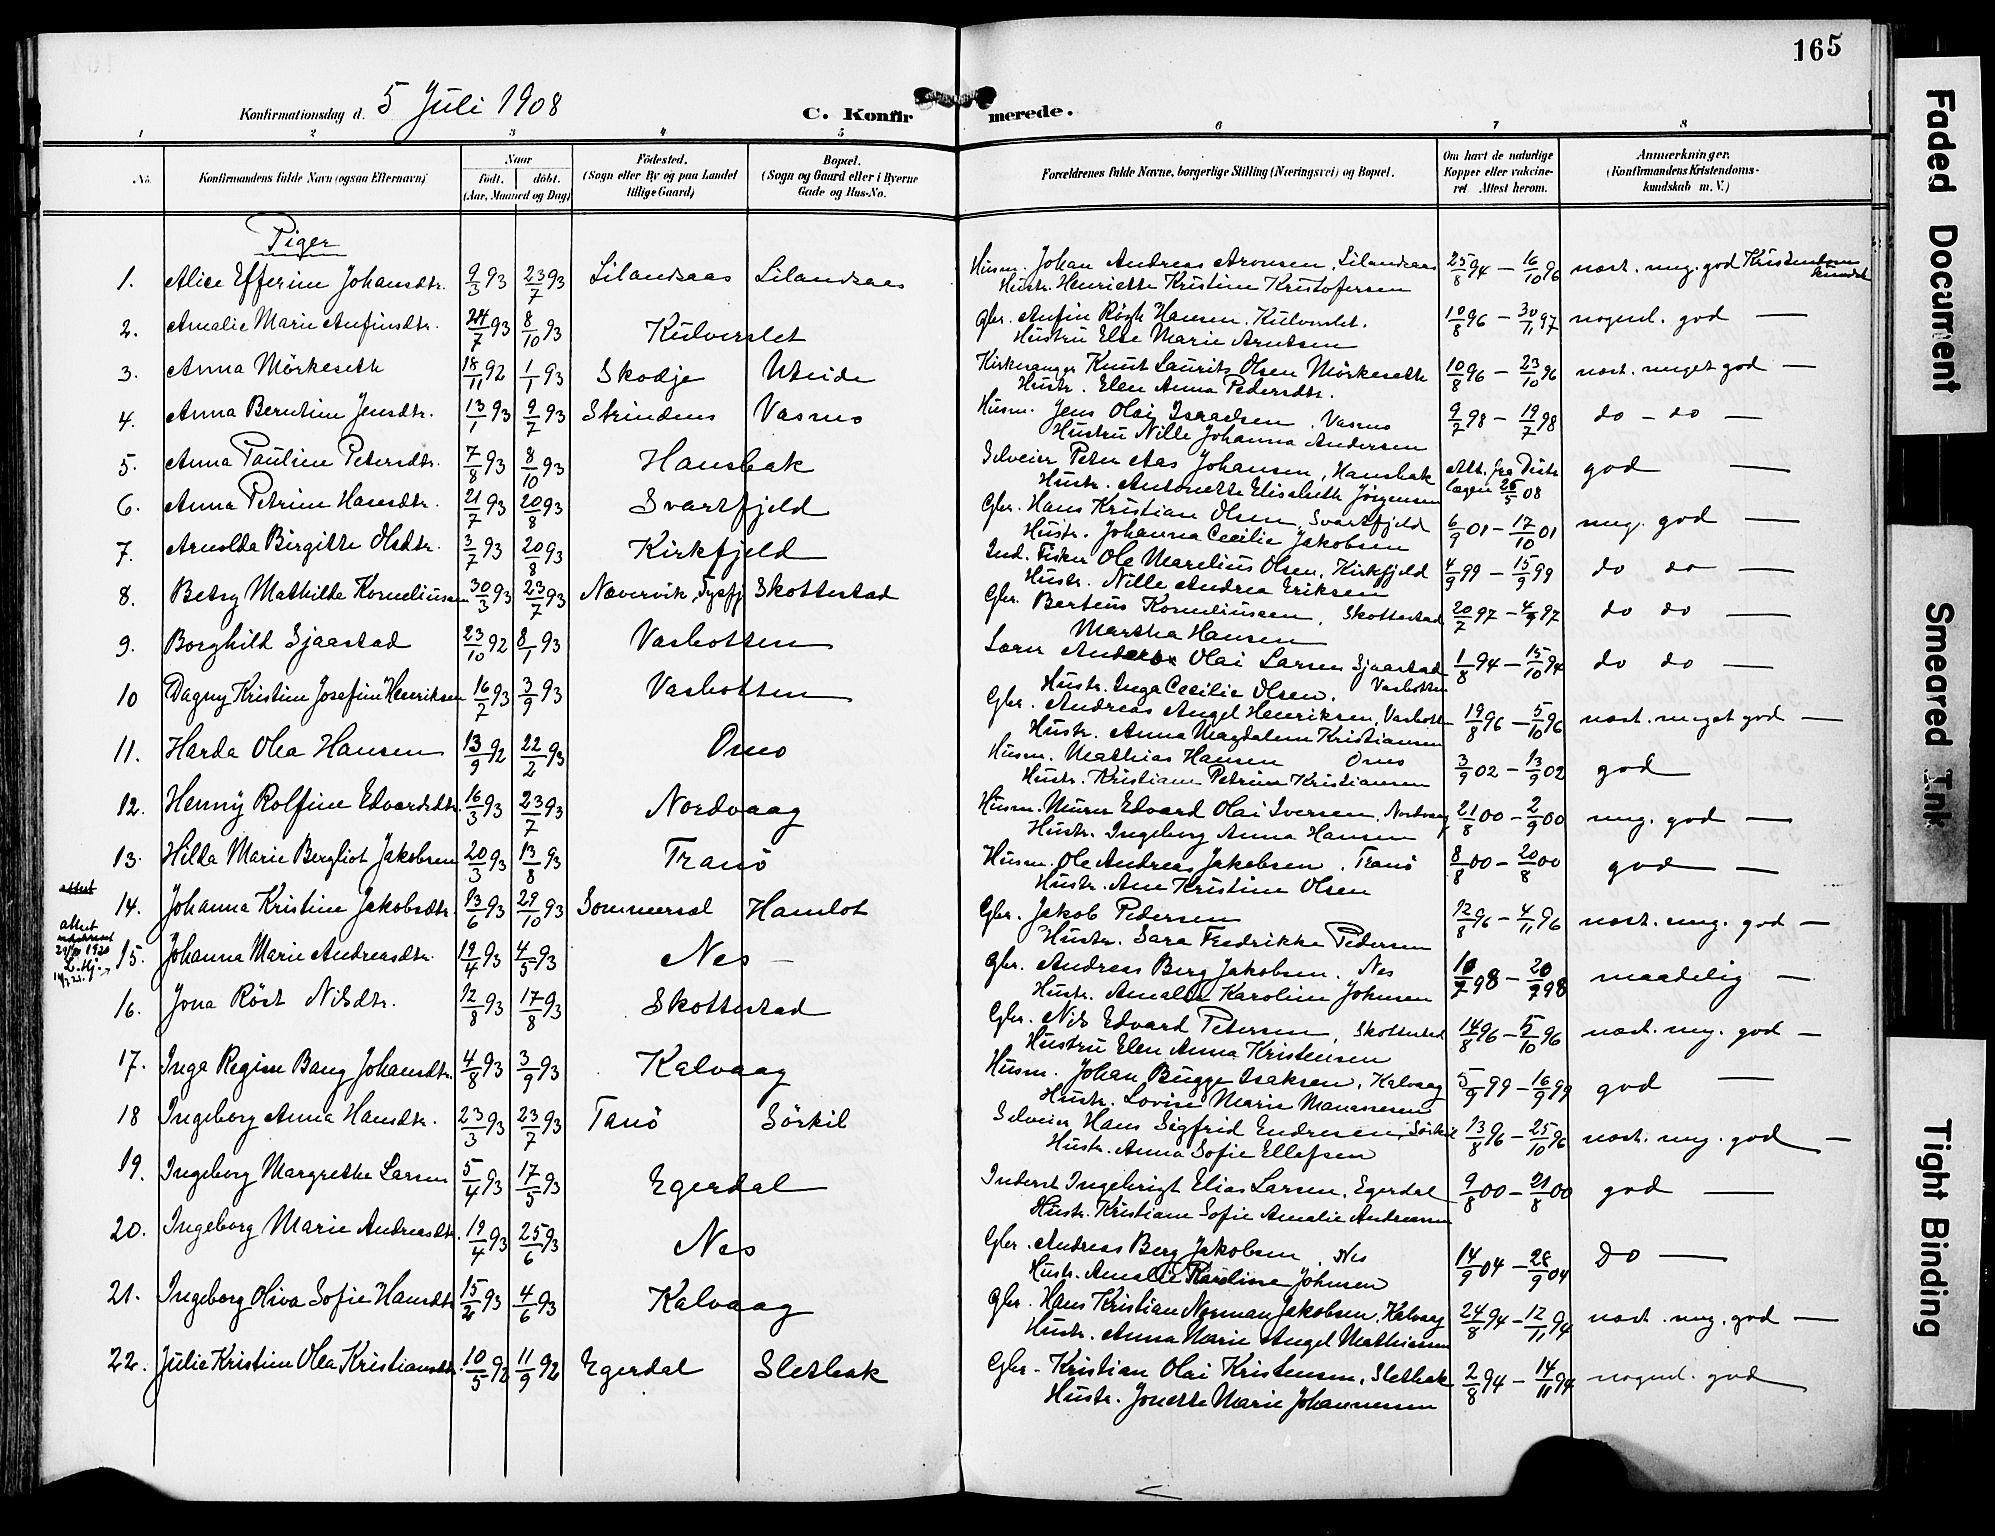 165
Konfirmationsdag d. 5 Juli 1908
C. Konfirmerede.
1 2 3 4 5 6 7 8
No.
Konfirmandens fulde Navn (ogsaa Efternavn)
Naar
födt. döbt.
(Aar, Maaned og Dag)
Födested.
(Sogn eller By og paa Landet
tillige Gaard)
Bopæl.
(Sogn og Gaard eller i Byerne
Gade og Hus-No.
Forældrenes fulde Navne, borgerlige Stilling (Næringsvei) og Bopæl.
Om havt de naturlige
Kopper eller vakcine-
ret Attest herom.
Anmærkninger.
(Konfirmandens Kristendoms-
kundskab m. V.)
Piger
1. Alice Efferine Johansdtr. 9/3 93 23/7 93 Lilandsaas Lilandsaas Husm. Johan Andreas Aronsen, Lilandsaas 25/8 94 – 16/10 96 næst. meg. god Kristendoms
Hustr. Henriette Kristine Kristofersen kundsk
2. Amalie Marie Anfinsdtr. 24/7 93 8/10 93 Kulverslet Gbr. Anfin Røgh Hansen. Kulverslet. 10/8 96 – 30/1 97 nogenl. god —
Hustru Else Marie Arntsen
3. Anna Mörkeseth 18/11 92 1/1 93 Skodje Utheide Kirkesanger Knut Laurits Olsen Mörkeseth 10/8 96 – 23/10 96 næst. meget god —
Hustr. Elen Anna Pedersdtr.
4. Anna Berntine Jensdtr. 13/1 93 9/7 93 Strindens Vasmo Husm. Jens Olai Isaaksen, Vasmo 9/7 98 – 19/7 98 do – do —
Hustru Nille Johanna Andersen
5. Anna Pauline Petersdtr. 7/8 93 8/10 93 Hansbak Selveier Peter Aas Johansen, Hansbak Att. fra Distr. god —
Hustr. Antonette Elisabeth Jörgensen lægen 26/5 08
6. Anna Petrine Hansdtr. 21/7 93 20/8 93 Svartfjeld Gbr. Hans Kristian Olsen, Svartfjeld 6/9 01 – 17/10 01 meg. god —
Hustr. Johanna Cecilie Jakobsen
7. Arnolda Birgitte Olsdtr. 3/7 93 20/8 93 Kirkfjeld Ind. Fisker Ole Marelius Olsen, Kirkfjeld 4/9 99 – 15/9 99 do do —
Hustr. Nille Andrea Eriksen
8. Betsy Mathilde Korneliussen 30/3 93 23/7 93 Nævervik, Tysfj Skottestad Gbr. Berteus Korneliussen, Skottestad 20/7 97 – 4/9 97 do do —
Martha Hansen
9. Borghild Sjaastad 23/10 92 8/1 93 Vasbotten Anders Olai Larsen Sjaastad 1/8 94 – 15/10 94 do do —
Hustr. Inga Cecilie Olsen. Vasbotten
10 Dagny Kristine Josefine Henriksen 16/7 93 3/9 93 Vasbotten Gbr. Andreas Angel Henriksen, Vasbott 19/8 96 – 5/10 96 næst. meget god —
Hustr. Anna Magdalena Kristiansen
11. Harda Olea Hansen 13/9 92 22/2 93 Osmo Husm. Mathias Hansen Osmo 3/9 02 – 13/9 02 god
Hustr. Kristiane Petrine Kristiansen
12. Henny Rolfine Edvardsdtr. 16/3 93 23/7 93 Nordvaag Husm. Murer Edvard Olai Iversen, Nordvaag 21/8 00 – 2/9 00 meg. god —
Hustr. Ingeborg Anna Hansen
13. Hilda Marie Bergliot Jakobsen 20/3 93 13/8 93 Tranö Husm. Ole Andreas Jakobsen, Tranö 8/8 00 – 20/8 00 god —
Hustr. Ane Kristine Olsen
attest
14. Johanna Kristine Jakobsdtr. 13/6 93 29/10 93 Sommersel Hamlot Gbr. Jakob Pedersen 12/8 96 – 4/11 96 næst. meg. god —
Hustr. Sara Fredrikke Pedersen
attest
1920
15. Johanna Marie Andreasdtr. 19/4 93 4/5 93 Nes – Gbr. Andreas Berg Jakobsen. Nes 10/7 98 – 20/7 98 maadelig —
Hustr. Amalia Karoline Johnsen
16. Jona Röst Nilsdtr. 12/8 93 17/8 93 Skottestad Gbr. Nils Edvard Petersen, Skottestad 14/8 96 – 5/10 96 næst. meg. god —
Hustru Elen Anna Kristensen
17. Inga Regine Bang Johansdtr. 4/8 93 3/9 93 Kalvaag Husm. Johan Bugge Isaksen, Kalvaag 5/9 99 – 16/9 99 god —
Hustr. Lovise Marie Manassesen
18 Ingeborg Anna Hansdtr. 23/3 93 23/7 93 Tanö Sörkil Selveier Hans Sigfrid Endresen, Sörkil 13/8 96 – 25/10 96 næst. meg. god —
Hustr. Anna Sofie Ellefsen
19. Ingeborg Margrethe Larsen 5/4 93 17/5 93 Egerdal Inderst Ingebrigt Elias Larsen, Egerdal 9/8 00 – 21/8 00 god —
Hustr. Kristiane Sofie Amalie Andreasen
20. Ingeborg Marie Andreasdtr. 19/4 93 25/6 93 Nes Gbr. Andreas Berg Jakobsen, Nes 14/9 04 – 28/9 04 do —
Hustr. Amalie Karoline Johnsen
21. Ingeborg Oliva Sofie Hansdtr 15/2 93 4/6 93 Kalvaag Gbr. Hans Kristian Norman Jakobsen, Kalvaag 24/8 94 – 12/11 94 næst. meg. god —
Hustr. Anna Marie Angel Mathiesen
22. Julie Kristine Olea Kristiansdtr. 10/5 92 11/9 92 Egerdal Sletbak Gbr. Kristian Olai Kristensen, Sletbak 2/8 94 – 14/11 94 nogenl. god
Hustr. Jonette Marie Johannessen
Faded Document
Smeared Ink
Tight Binding